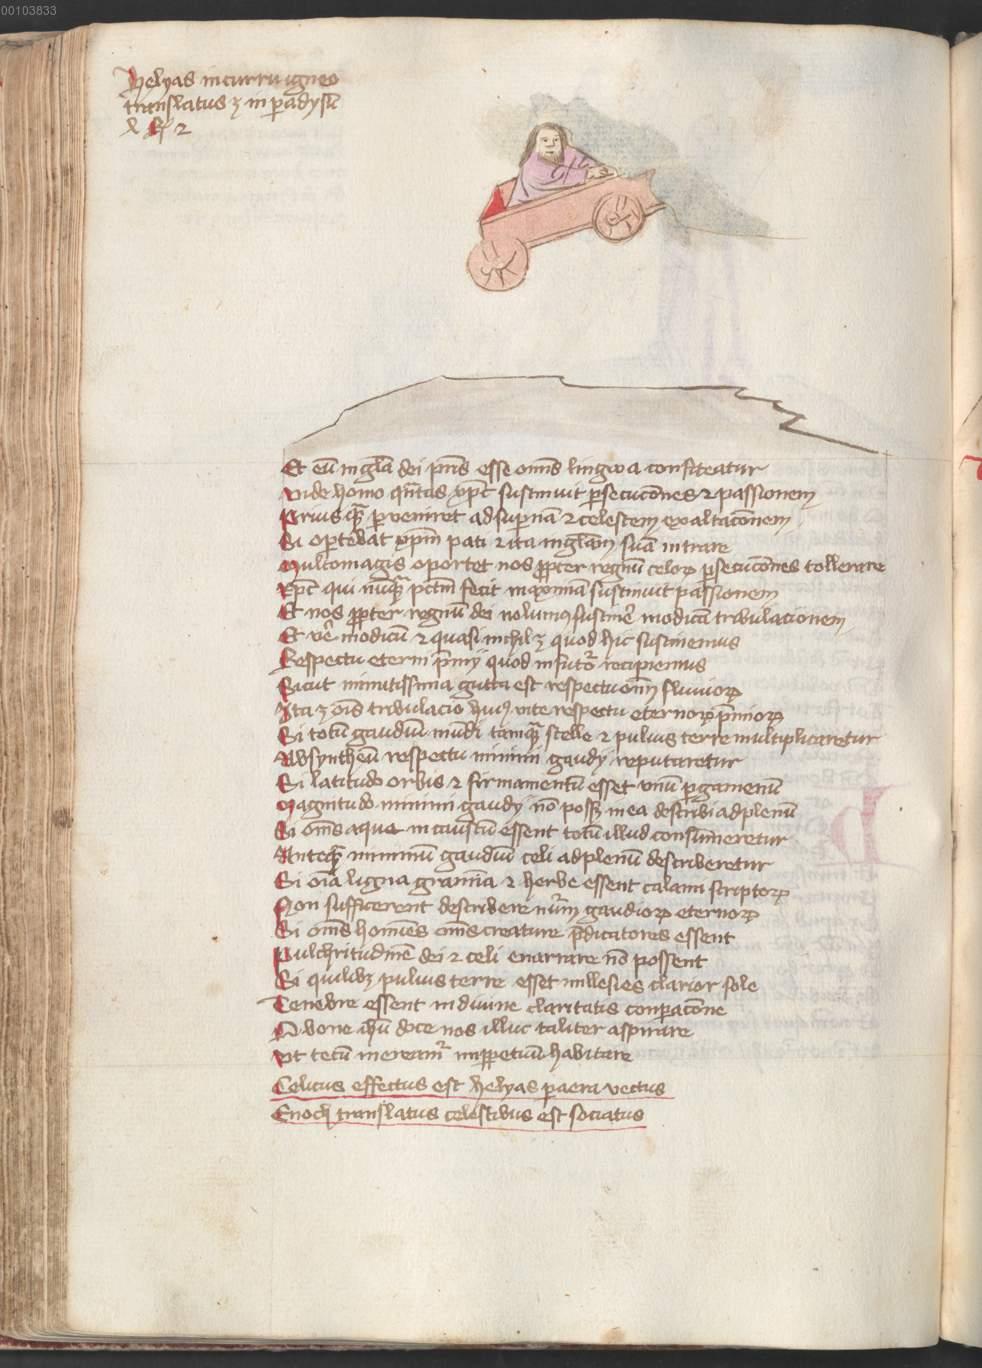 00103833
Helyas in curru igneo
translatus ⁊ in padysū
Et eū in gl̄a dei pr̄is esse om̄is lingwa confiteatur
Vide homo q̄ntas xp̄c sustinuit p̄secucōnes ⁊ passionem
Prius q̄ꝫ p̄veniret ad sup̄nā ⁊ celestem exaltacōnem
Si oportebat xp̄m pati ⁊ ita in gl̄iam suā intrare
Multo magis oportet nos ꝓpter regnū celoꝝ ꝑsecucōnes tollerare
Xp̄c qui nūqꝫ pctm̄ fecit maximā sustinuit passionem
Et nos ꝓpter regnū dei nolumꝰ sustinē modicā tribulacionem
Et vē modicū ⁊ quasi nichil ē quod hic sustinemus
Respectu eterni p̄mij quod in futō recipiemus
Sicut minutissima gutta est respectu om̄m fluvioꝝ
Ita ē om̄is tribulacio huiꝰ vite respectu eternoꝝ p̄mioꝝ
Si totū gaudiū mūdi tamqꝫ stelle ⁊ pulvis terre multiplicaretur
Absyntheū respectu minimi gaudij reputaretur
Si latitudo orbis ⁊ firmamentū esset vnū ꝑgamenū
Magnitudo minimi gaudij nō possꝫ in ea describi ad plenū
Si om̄s aque incaustū essent totū illud consūmeretur
Anteqꝫ minimū gaudiū celi ad plenū describeretur
Si oīa ligna gramīa ⁊ herbe essent calami scriptoꝝ
Non sufficerent describere nūm gaudioꝝ eternoꝝ
Si om̄s homīes om̄s creature p̄dicatores essent
Pulchritudinē dei ⁊ celi enarrare nō possent
Si quilibꝫ pulvis terre esset millesies clarior sole
Tenebre essent in divine claritatis conparacōne
O bone ihū doce nos illuc taliter aspirare
Vt tecū mereamr̄ in ꝑpetuū habitare
Celicus effectus est Helyas p aera vectus
Enoch translatus celestibus est sociatus